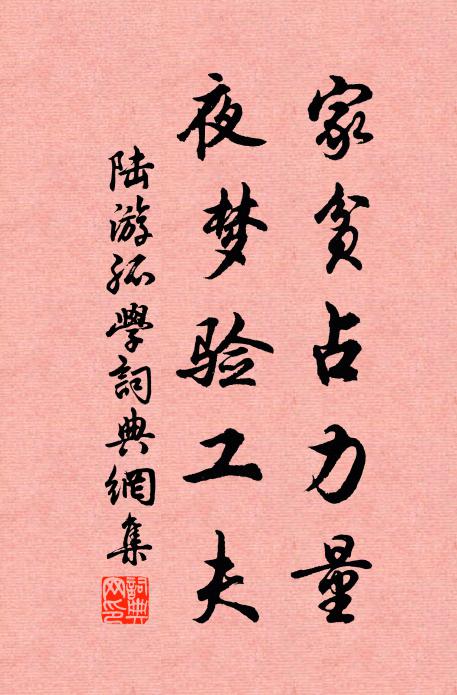 家贫占力量
夜梦验工夫
陆游孤學詞典網集
詞典
网印